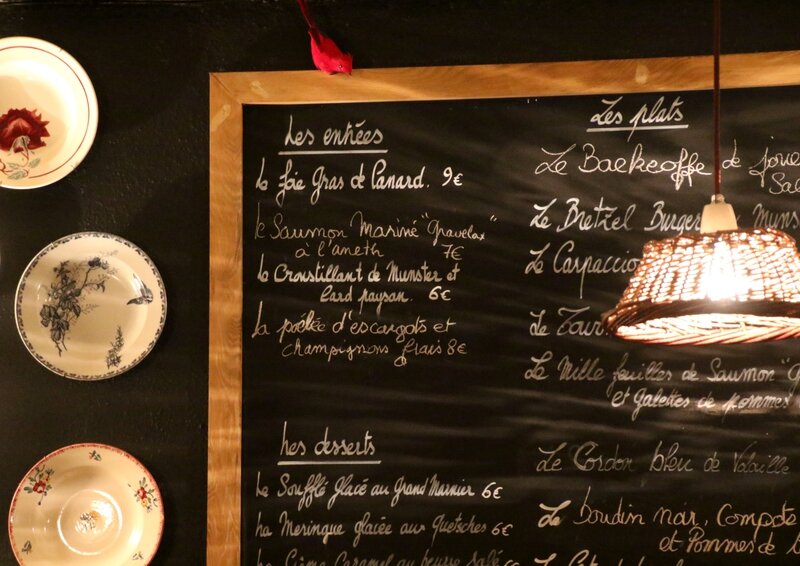 Les entrées
Le foie Gras de Canard. 9€
Le Saumon Mariné "Gravelax"
à l'aneth 7€
Le Croustillant de Munster et
lard paysan. 6€
La poêlée d'escargots et
champignons frais 8€
Les desserts
Le Soufflé glacé au Grand Marnier 6€
La Meringue glacée aux Quetsches 6€
La Crème Caramel au beurre salé
Les plats
Le Baekeoffe de
Le Bretzel Burger
Le Carpaccio
Le
Le Mille feuilles de Saumon
et Galettes de pommes
Le Cordon bleu de Volaille
Le boudin noir, Compote
et Pommes de